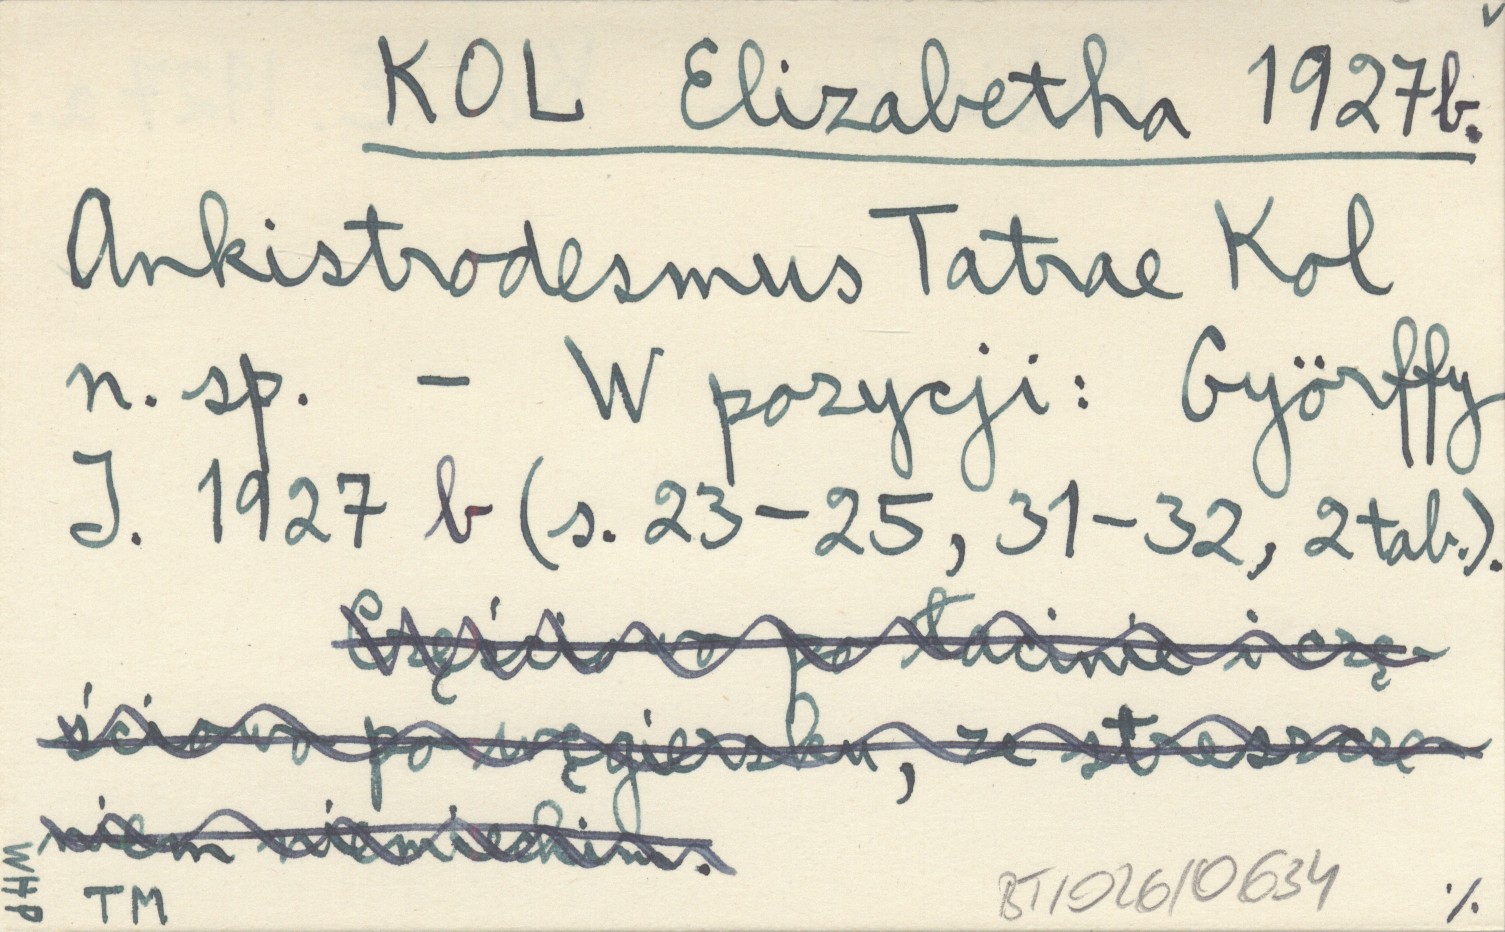 v
KOL Elizabetha 1927b.
Ankistrodesmus Tatrae Kol
n. sp. – W pozycji: Györffy
I. 1927 b (s. 23–25, 31–32, 2 tab.).
Częściowo po łacinie i czę-
ściowo po węgiersku, ze streszcze
niem niemieckim.
WHP
TM
BT/026/0634
·/.